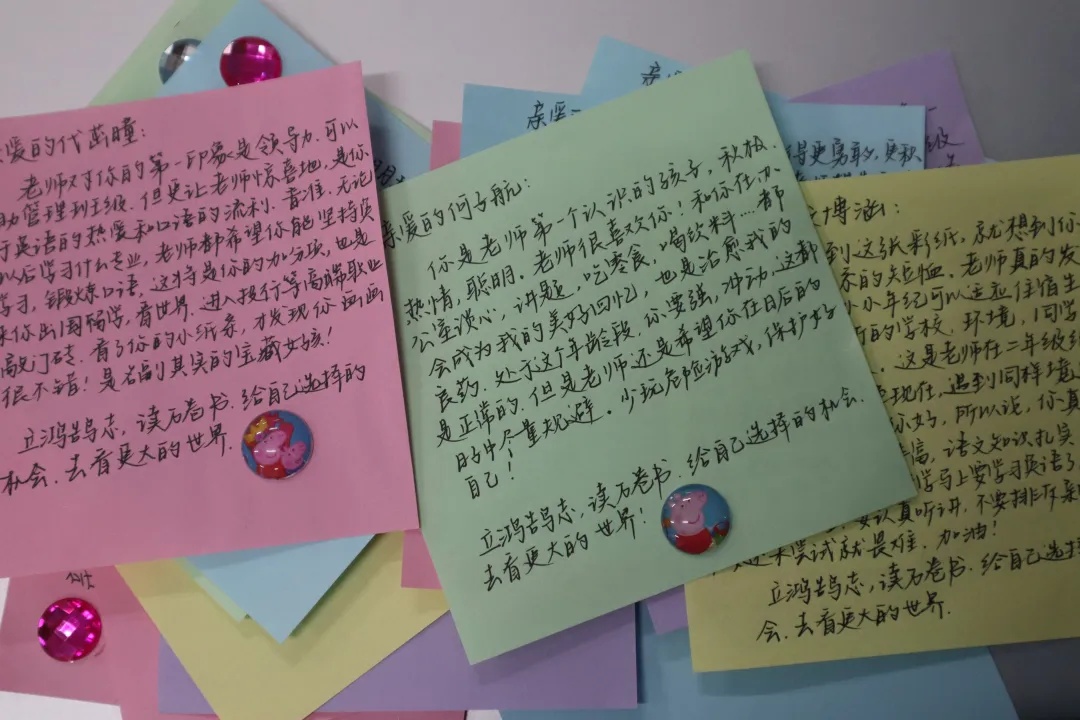 爱的代茁瞳：
老师对你的第一印象是领导力.可以
助管理到班级.但更让老师惊喜地.是你
于英语的热爱和口语的流利.音准.无论
以后学习什么专业,老师都希望你能坚持英
学习,锻炼口语,这将是你的加分项,也是
来你出国留学,看世界.进入投行等高端职业
敲门砖.看了你的小纸条,才发现你画画
很不错!是名副其实的宝藏女孩!
立鸿鹄志,读万卷书.给自己选择的
机会.去看更大的世界.
亲爱的何子航：
你是老师第一个认识的孩子,积极.
热情,聪明.老师很喜欢你!和你在办
公室谈心,讲题,吃零食,喝饮料....都
会成为我的美好回忆,也是治愈我的
良药.处于这个年龄段.你要强,冲动.这都
是正常的.但是老师还是希望你在日后的
时候尽量规避.少玩危险游戏,保护好
自己!
立鸿鹄志,读万卷书.给自己选择的机会.
去看更大的世界!
博涵：
到这张彩纸,就想到你
的短恤.老师真的发
小小年纪可以适应住宿生
的学校.环境,同学
.这是老师在二年级
现在,遇到同样境遇
你好,所以说,你真
富,语文知识扎实
学马上要学习英语了
要认真听讲,不要排斥
还未尝试就畏难.加油!
立鸿鹄志,读万卷书.给自己选择
会.去看更大的世界.
亲爱
得更勇敢,更积
级